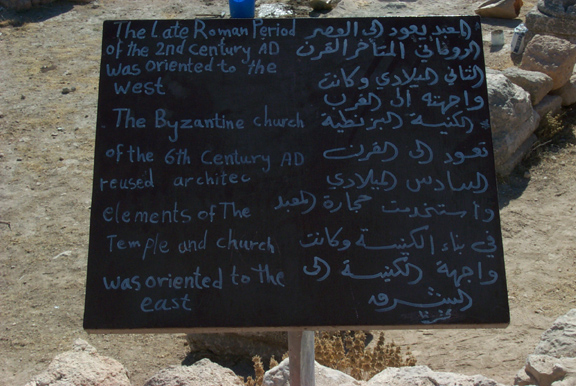 The Late Roman Period
of the 2nd century AD
was oriented to the
west
The Byzantine church
of the 6th Century AD
reused architec
elements of The
Temple and church
was oriented to the
east
المعبد يعود الى العصر
الروماني المتاخر القرن
الثاني الميلادي وكانت
واجهته الى الغرب
الكنيسة البزنطية
تعود الى القرن
السادس الميلادي
واستخدمت حجارة المعبد
في بناء الكنيسة وكانت
واجهة الكنيسة الى
الشرق